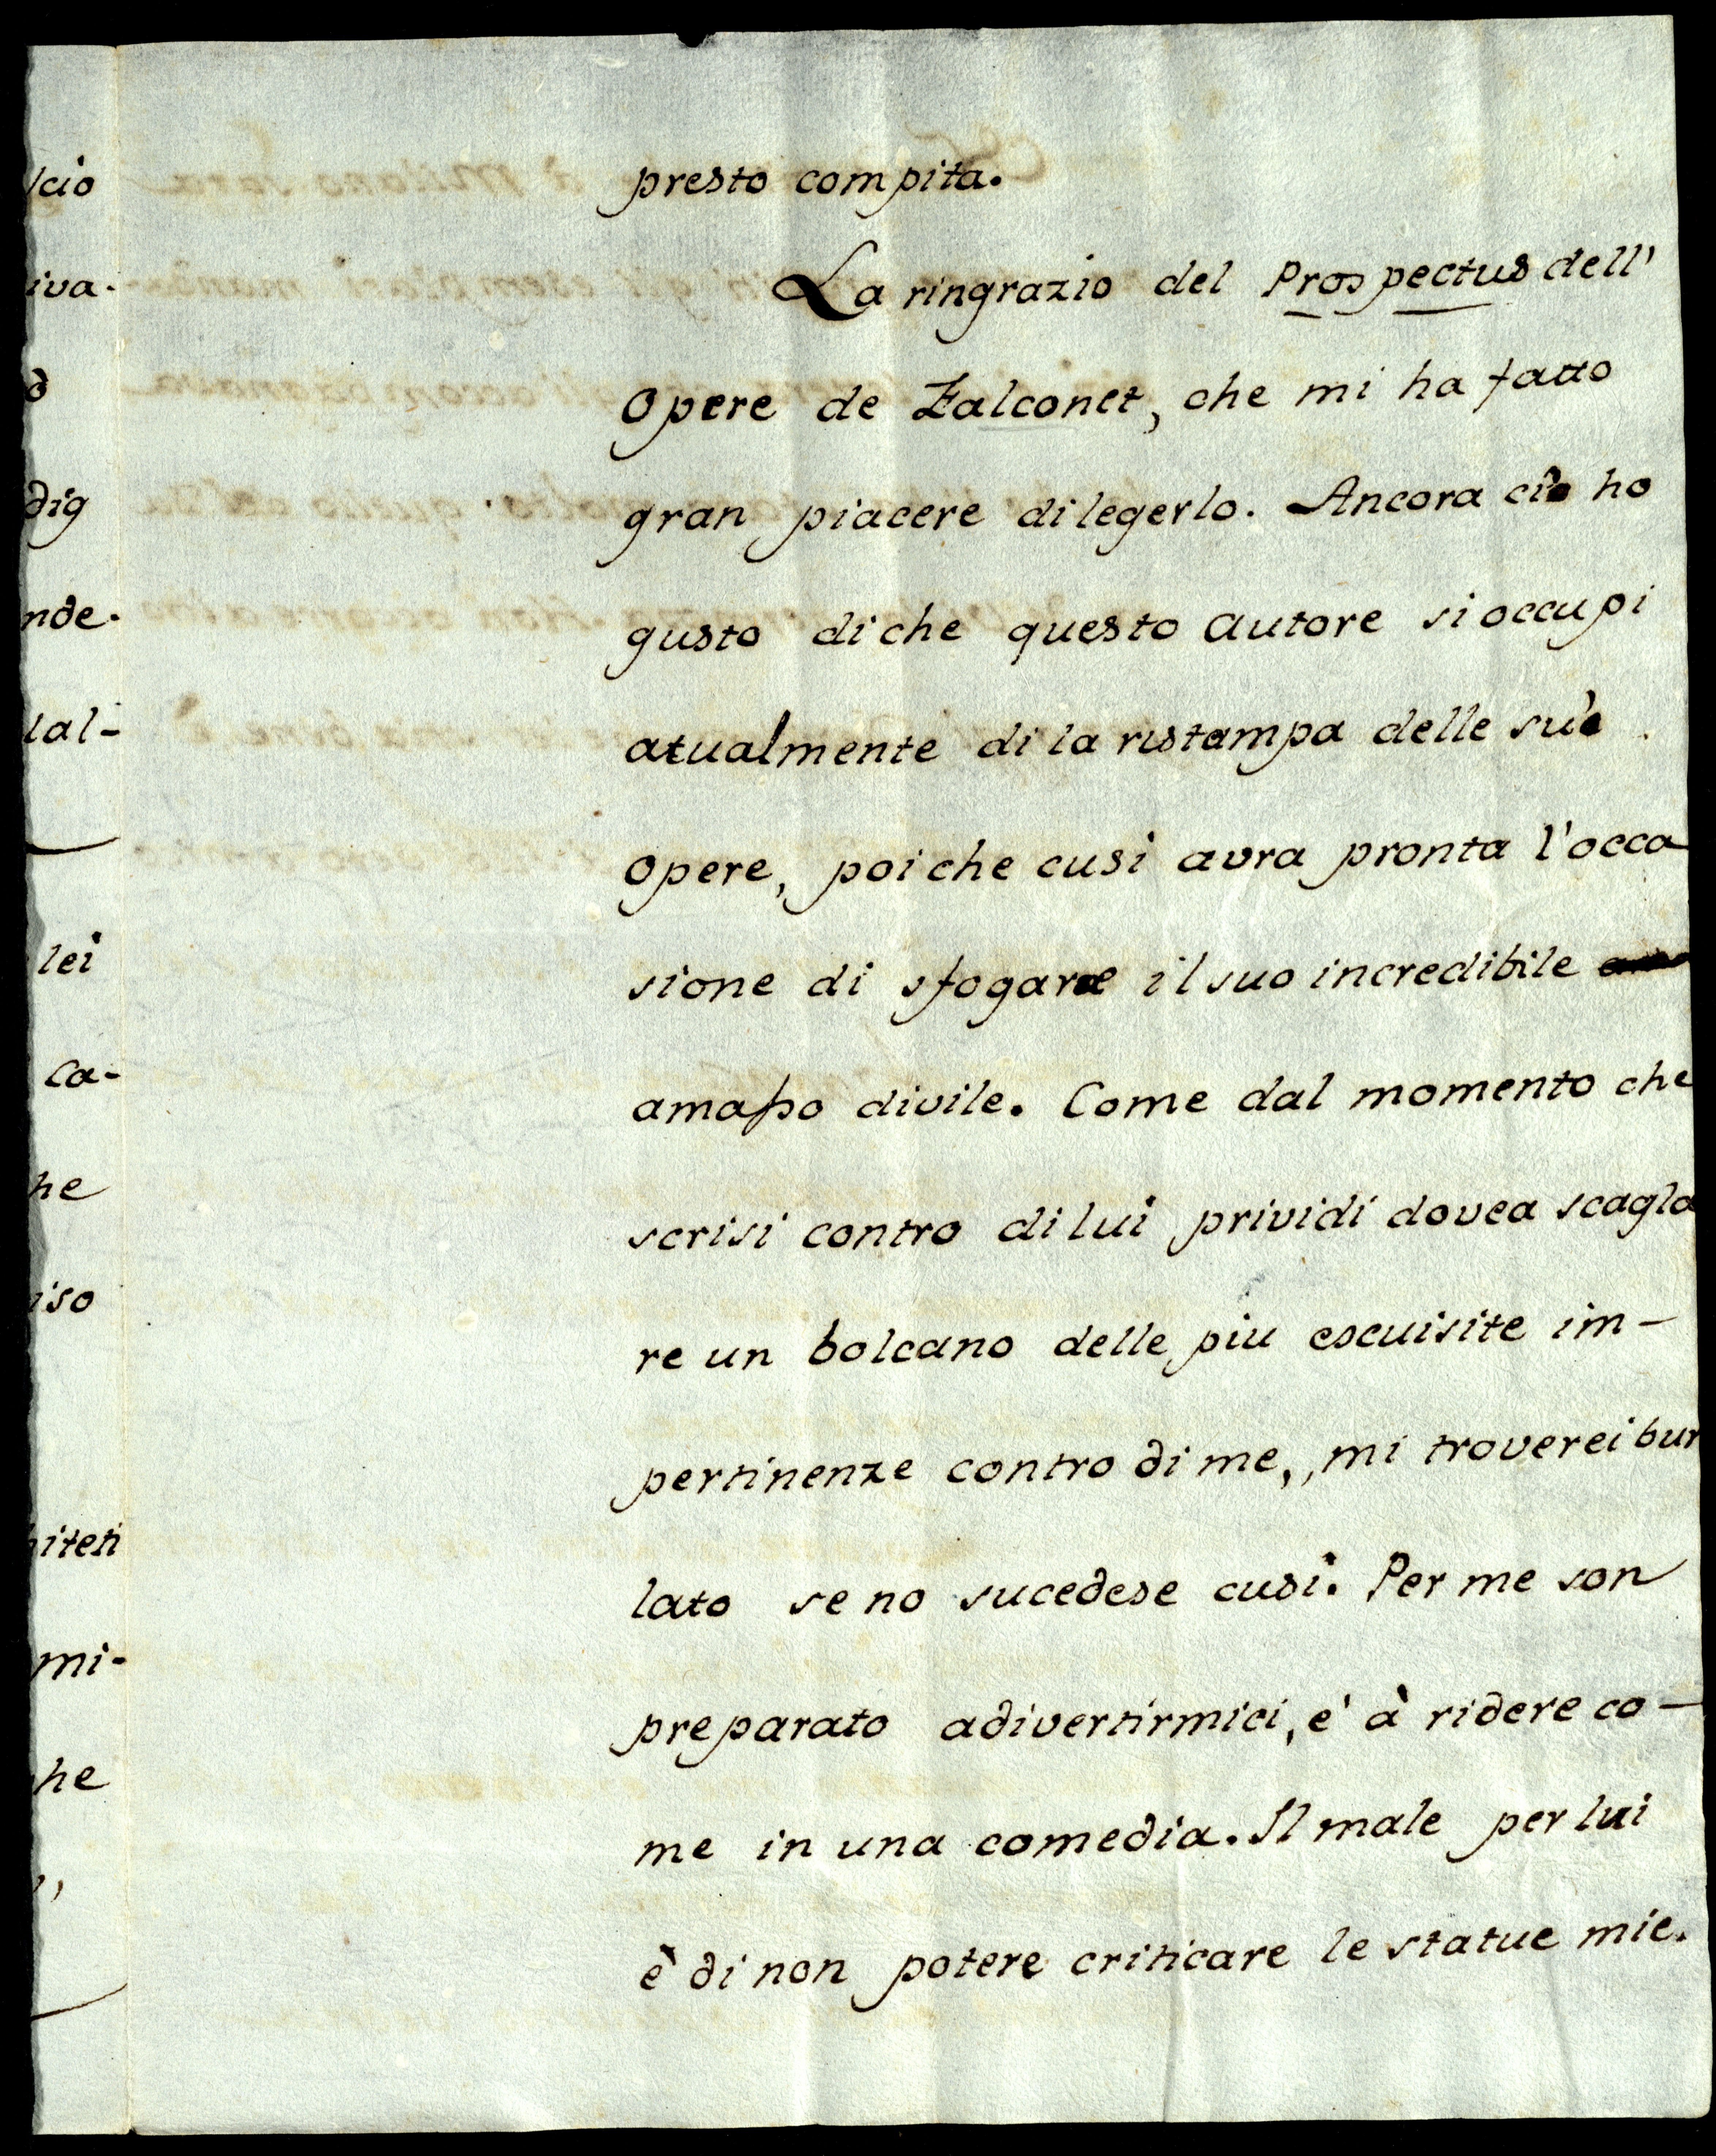 presto compita.
La ringrazio del Prospectus dell'
Opere de Falconet, che mi ha fatto
gran piacere di legerlo. Ancora ciò ho
gusto di che questo autore si occupi
atualmente di la ristampa delle suè
Opere, poi che cusi avra pronta l'occa
sione di sfogare il suo incredibile
amasso di vile. Come dal momento che
scrisi contro di lui prividi dovea scagla
re un bolcano delle piu escuisite im-
pertinenze contro di me, mi troverei bur
lato se no sucedese cusi. Per me son
preparato a divertirmici, è à ridere co-
me in una comedia. Il male per lui
è di non potere criticare le statue mie.
cio
iva-
dig
nde.
lal-
lei
Ca-
he
iso
iteti
mi-
he